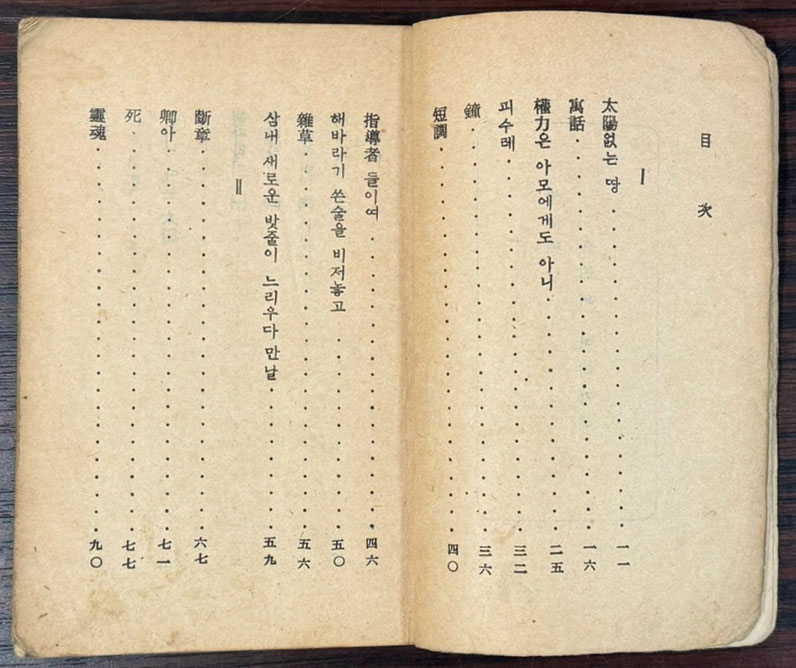 目次
I
太陽없는 땅 一一
寓話 一六
權力은 아모에게도 아니 二五
피수레 三二
鐘 三六
短調 四〇
指導者 들이여 四六
해바라기 쓴술을 비저놓고 五〇
雜草 五六
삼내 새로운 밧줄이 느리우다 만날 五九
II
斷章 六七
卿아 七一
死 七七
靈魂 九〇